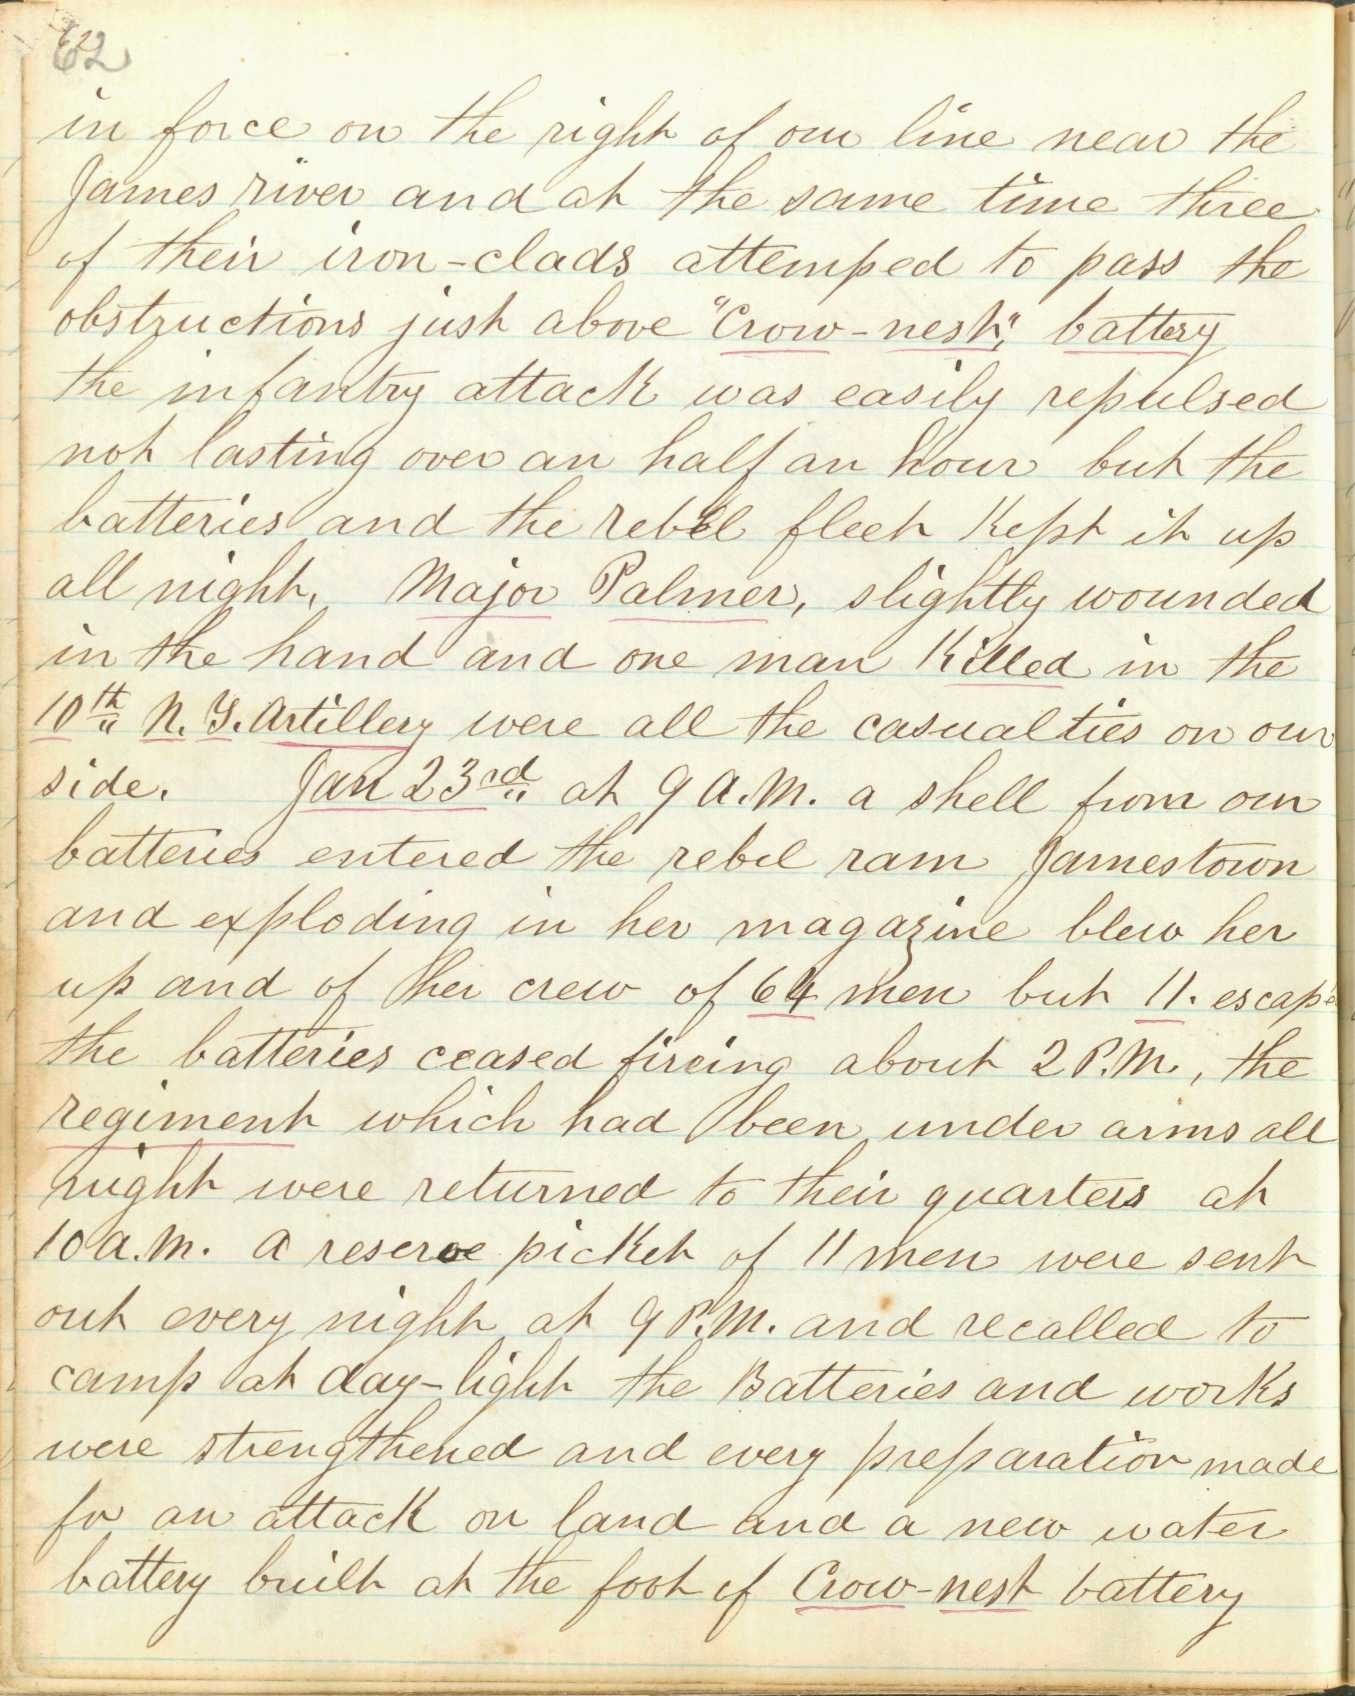 62
in force on the right of our line near the
James river and at the same time three
of their iron-clads attemped to pass the
obstructions just above "Crow-nest," battery
the infantry attack was easily repulsed
not lasting over an half an hour but the
batteries and the rebel fleet kept it up
all night. Major Palmer, slightly wounded
in the hand and one man killed in the
10th N.Y. Artillery were all the casualties on our
side. Jan 23rd at 9 A.M. a shell from our
batteries entered the rebel ram Jamestown
and exploding in her magazine blew her
up and of her crew of 64 men but 11. escape
the batteries ceased fireing about 2 P.M., the
regiment which had been under arms all
night were returned to their quarters at
10 a.m. a reserve picket of 11 men were sent
out every night at 9 P.M. and recalled to
camp at day-light the Batteries and works
were strengthened and every preparation made
for an attack on land and a new water
battery built at the foot of Crow-nest battery